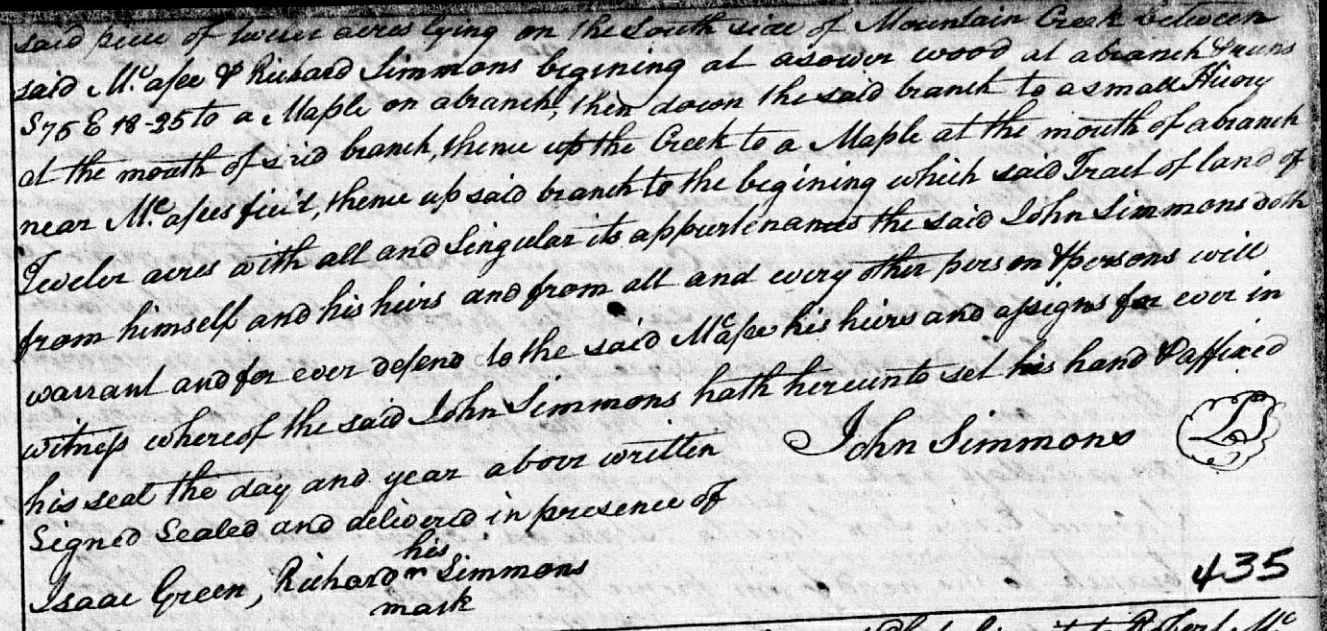 said piece of twelve acres lying on the South side of Mountain Creek between
said Mc.afee & Richard Simmons begining at asower wood at abranch & runs
S 75 E 18-25 to a Maple on abranch, then down the said branch to a small Hicory
at the mouth of said branch, thence up the Creek to a Maple at the mouth of abranch
near Mc.afees , thence up said branch to the begining which said Tract of land of
Twelve acres with all and Singular its appurtenances the said John Simmons doth
from himself and his heirs and from all and every other person & persons will
warrant and for ever defend to the said McAfee his heirs and assigns for ever in
witness whereof the said John Simmons hath hereunto set his hand & affixed
his seal the day and year above written John Simmons LS
Signed Sealed and delivered in presence of
his
Isaac Green, Richard Simmons
mark
435
to Robert Mc